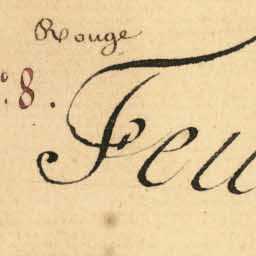 Rouge
:8. Feu